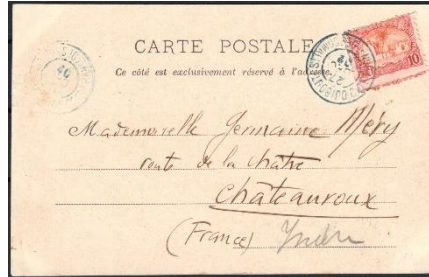 CARTE POSTALE
Ce côté est exclusivement réservé à l'adresse
10
Mademoiselle Germaine Méry
route de la châtre
Châteauroux
(France) Indre